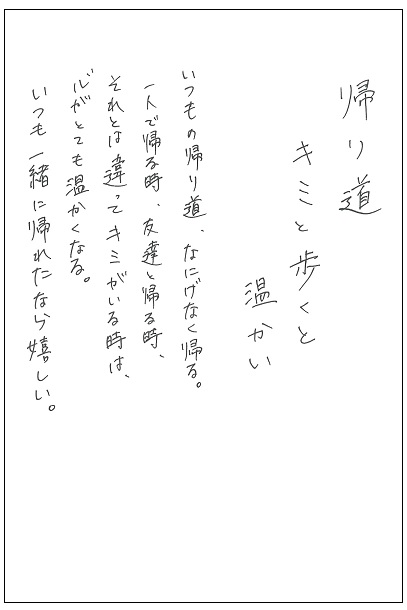 帰り道
キミと歩くと
温かい
いつもの帰り道、なにげなく帰る。
一人で帰る時、友達と帰る時、
それとは違ってキミがいる時は、
心がとても温かくなる。
いつも一緒に帰れたなら嬉しい。